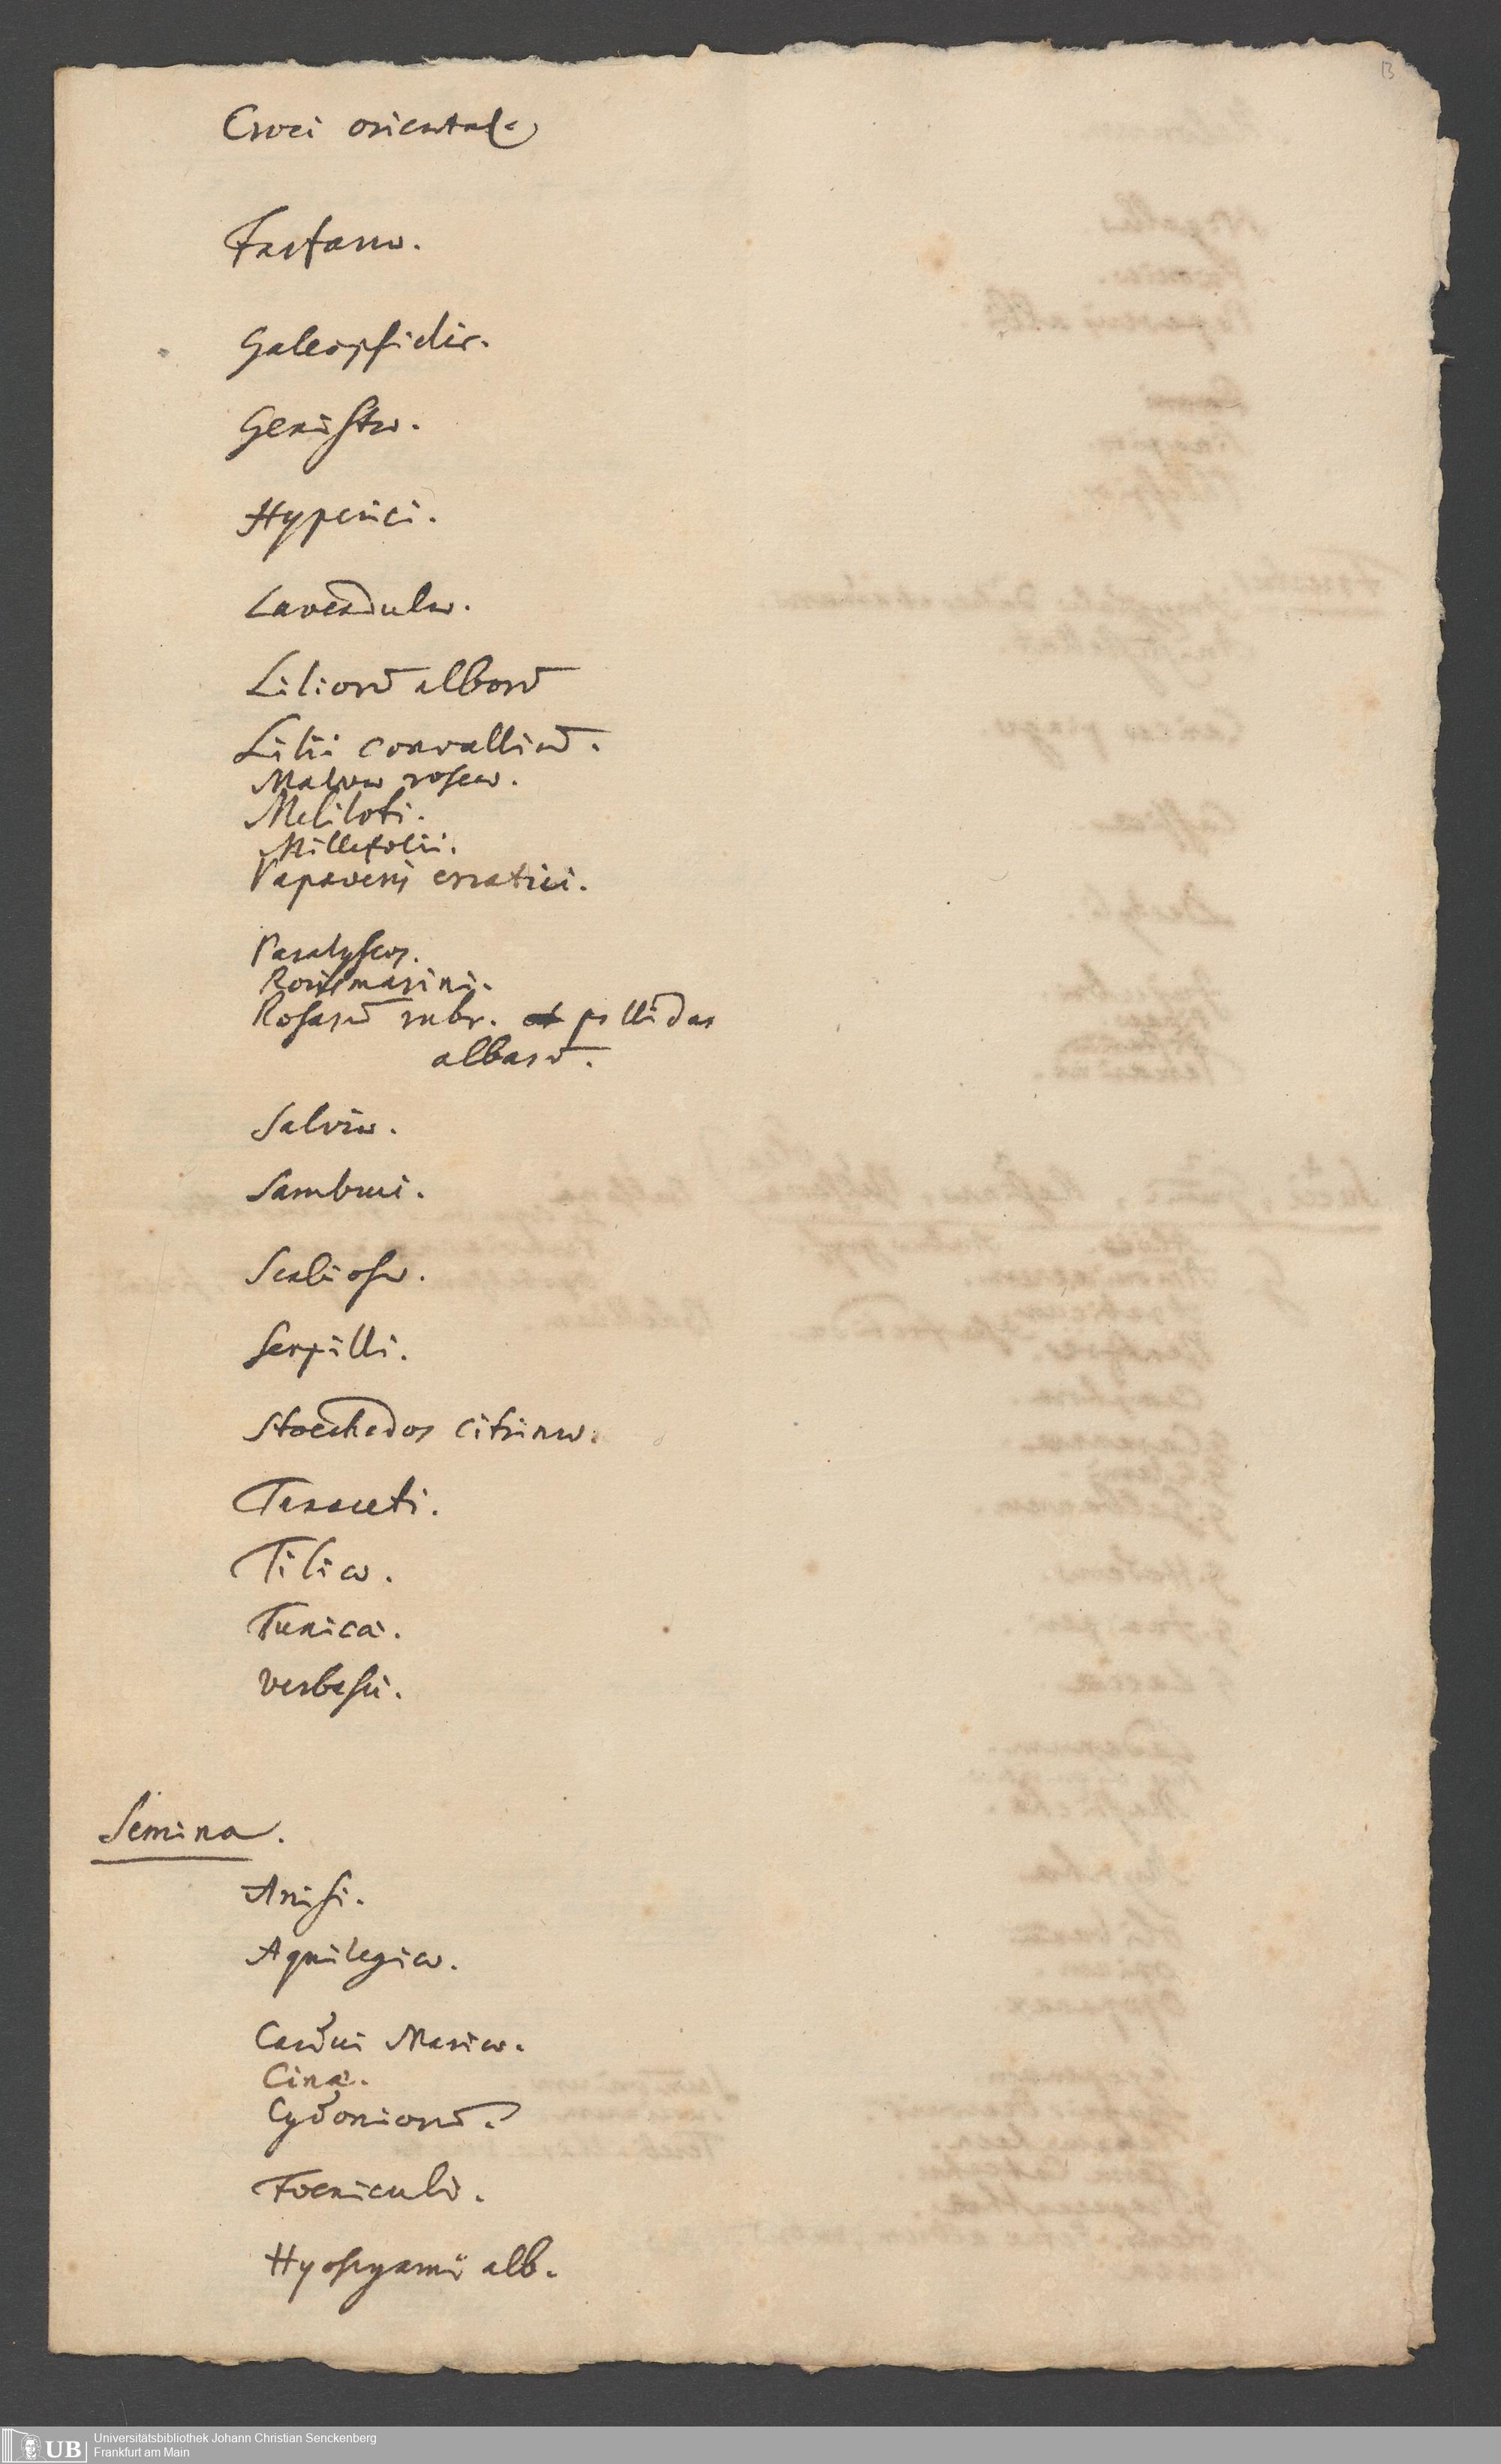 13
Croci orientale
Farfarae.
Galeopsidis.
Genistae.
Hyperici.
Lavendulae.
Liliorū alborū
Lilii convalliū.
Malvae roseae.
Meliloti.
Millefolii.
Papaveris erratici.
Paralyseos.
Rorismarini.
Rosarū rubr. pallidar
albarū.
Salviae.
Sambuci.
Scabiosae.
Serpilli.
Stoechados citrinae.
Tanaceti.
Tiliae.
Tunicae.
Verbasci.
Semina.
Anisi.
Aquilegiae.
Cardui Mariae.
Cinae.
Cydoniorū.
Foeniculi.
Hyoscyami alb.
UB Universitätsbibliothek Johann Christian Senckenberg
Frankfurt am Main